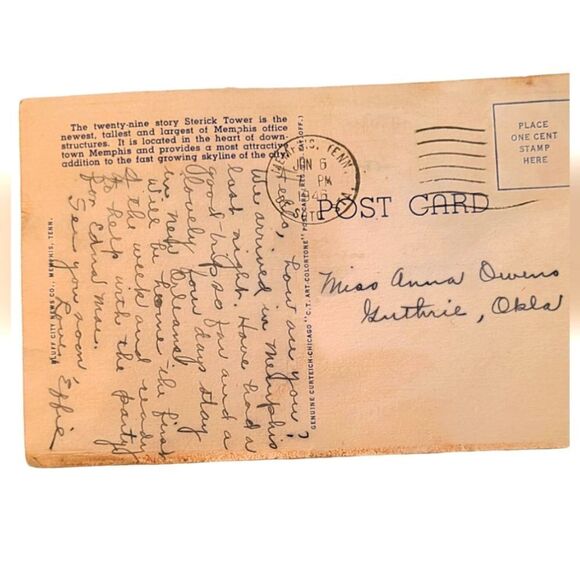 The twenty-nine story Sterick Tower is the
newest, tallest and largest of Memphis office
structures. It is located in the heart of down-
town Memphis and provides a most attractive
addition to the fast growing skyline of the city.
MEMPHIS, TENN.
JUN 6
PM
1946
POST CARD
PLACE
ONE CENT
STAMP
HERE
Miss Anna Owens
Guthrie, Okla
Hello, how are you?
We arrived in Memphis
last night. Have had a
good trip so far and a
lovely four days stay
in New Orleans.
Will be home the first
of the week and ready
to help with the party
for Edna Mae.
See you soon
Love, Effie
BLUFF CITY NEWS CO., MEMPHIS, TENN.
GENUINE CURTEICH-CHICAGO "C.T. ART-COLORTONE" POST CARD (REG. U.S. PAT. OFF.)